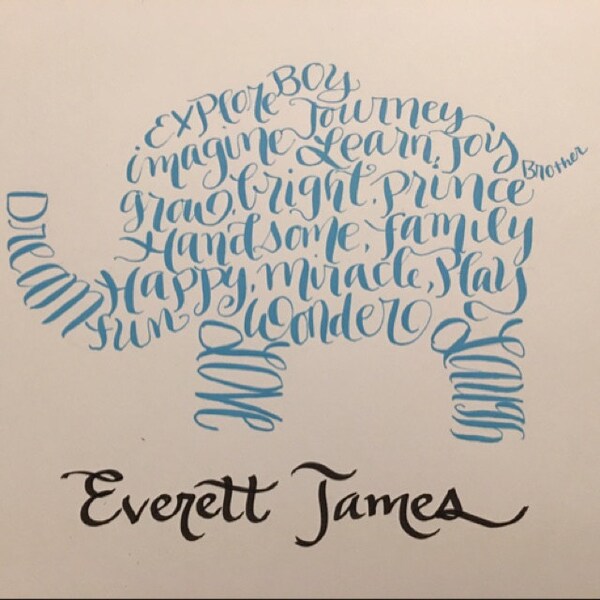 BOY
Explore Journey
imagine Learn, Joy
Brother
grow, bright, prince
Handsome, family
Happy, miracle, Play
fun Wonder
Dream
Love
Laugh
Everett James